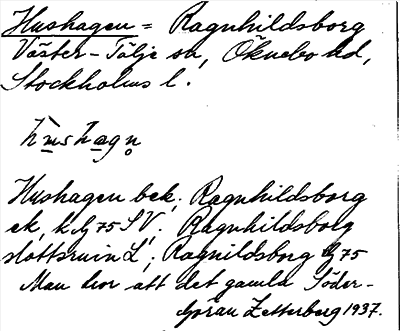 Hushagen = Ragnhildsborg
Väster-Tälje sn, Öknebo hd,
Stockholms l.
hùshagn
Hushagen bek; Ragnhildsborg
ek, kbg 75 SV. Ragnhildsborg
slottsruin L; Ragnildsbrg bg 75
Man tror att det gamla Söder-
Göran Zetterberg 1937.